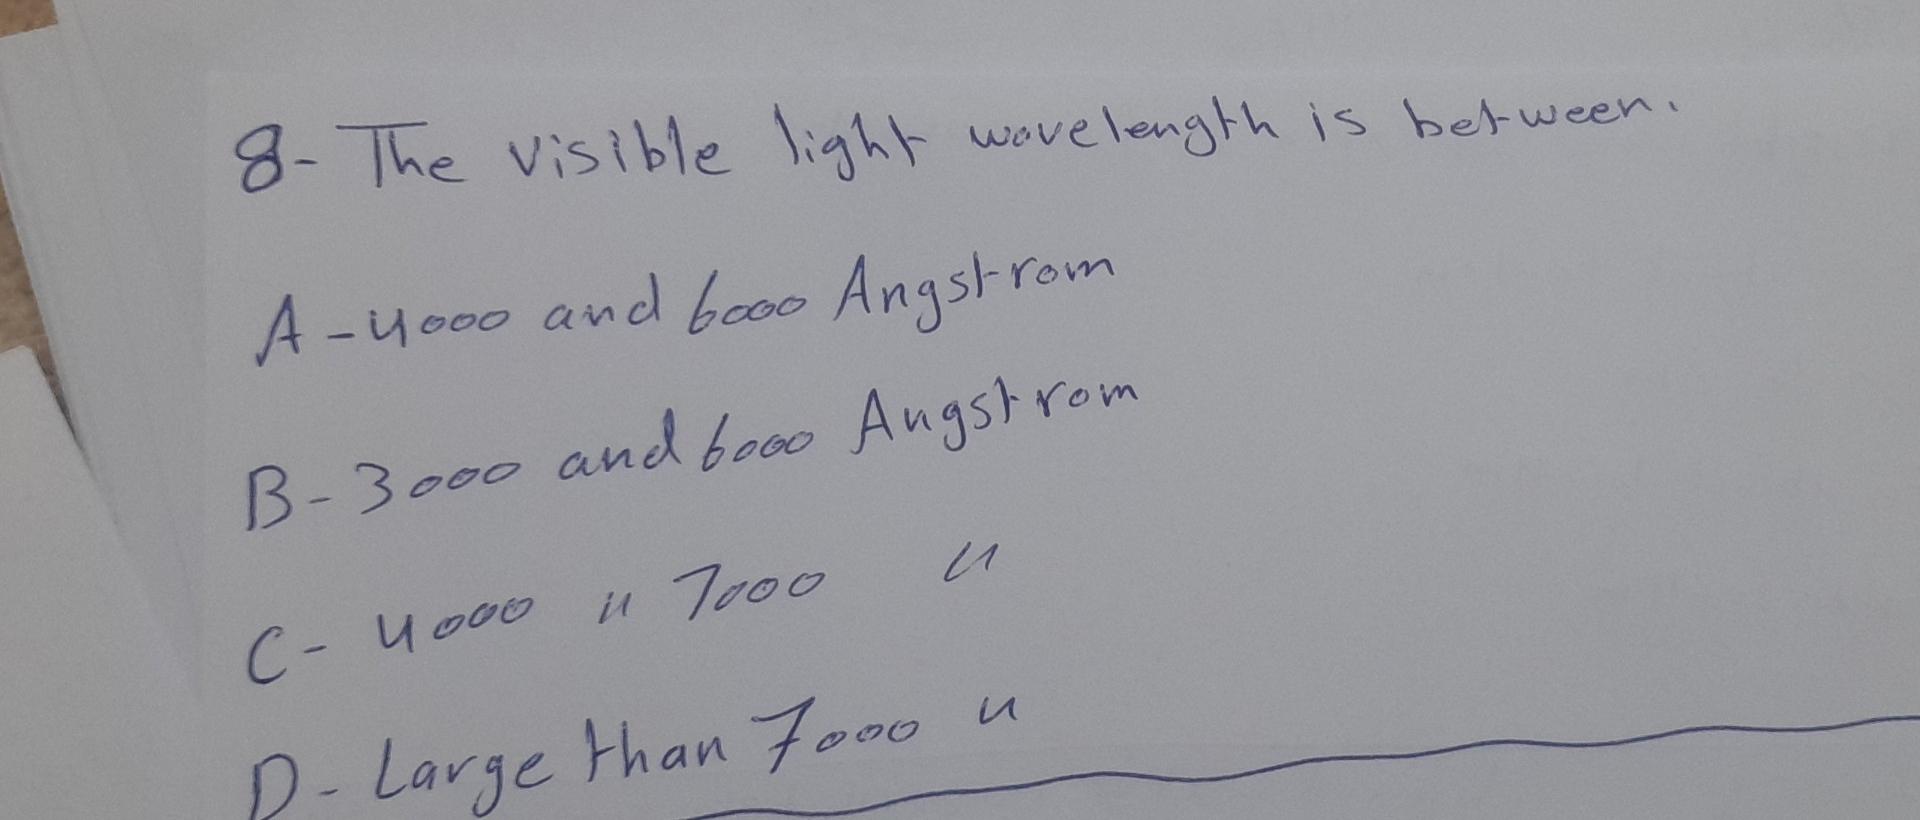 8- The visible light wavelength is between.
A - 4000 and 6000 Angstrom
B - 3000 and 6000 Angstrom
C - 4000 " 7000 "
D - Large than 7000 "